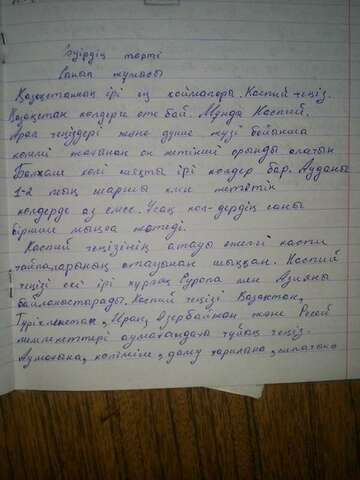 Сәуірдің төрті
Сынып жұмысы
Қазақстанның ірі су қоймалары. Каспий теңіз.
Қазақстан көлдерге өте бай. Мұнда Каспий,
Арал теңіздері және дүние жүзі бойынша
көлемі жағынан он жетінші орынды алатын
Балхаш көлі сияқты ірі көлдер бар. Ауданы
1-2 мың шаршы км жететін
көлдерде аз емес. Ұсақ көл-дердің саны
бірнше мыңға жетеді.
Каспий теңізінің атауы ежелгі каспи
тайпаларының атауынан шыққан. Каспий
теңізі екі ірі құрлық Еуропа мен Азияны
байланыстарады. Каспий теңізі Қазақтан,
Түрікменстан, Иран, Әзербайжан және Ресей
мемлекеттері аумағындағы тұйық теңіз.
Аумағына, көлеміне, даму тарихына,